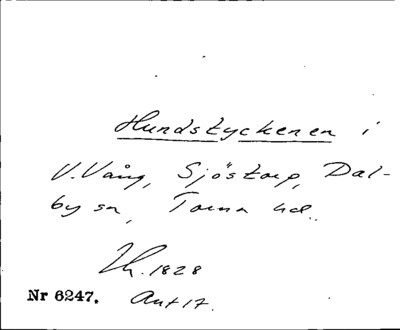 Hundstyckenen i
V. Vång, Sjöstorp, Dal-
by sn, Torna hd.
Lh. 1828
Nr 6247. Ant 17.